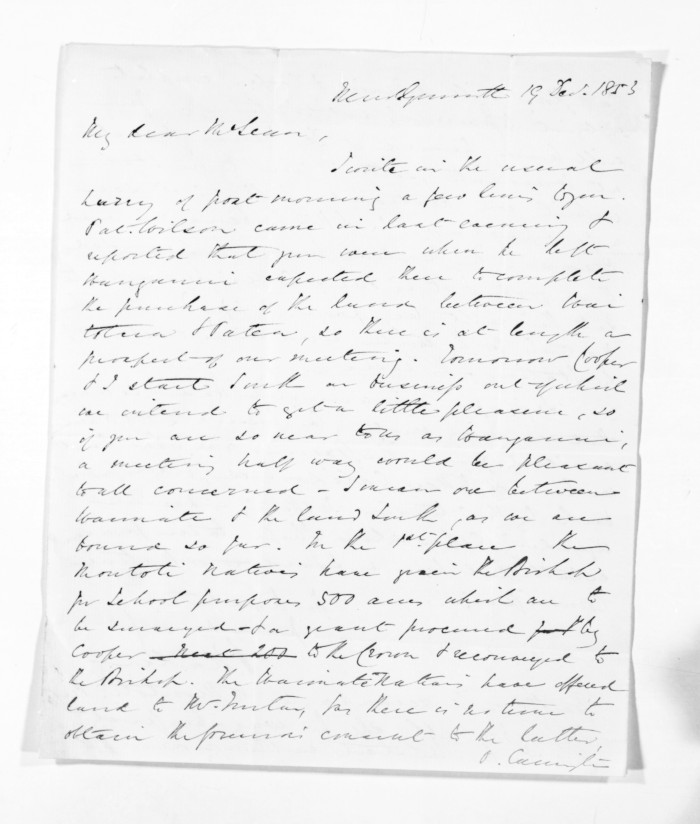 New Plymouth 19 Dec. 1853
My dear McLean,
I write in the usual
hurry of post morning a few lines to you.
Pat. Wilson came in last evening &
reported that you were when he left
Wanganui expected there to complete
the purchase of the land between Wai
totara & Patea, so there is at length a
prospect of our meeting. Tomorrow Cooper
& I start South on business out of which
we intend to get a little pleasure, so
if you are so near to us as Wanganui,
a meeting half way would be pleasant
to all concerned - I mean one between
Waimate & the land South, as we are
bound so far. In the 1st. place the
Montoti Natives have given the Bishop
for School purposes 500 acres which are to
be surveyed & a grant procured by
Cooper to the Crown & reconveyed to
the Bishop. The Waimate Natives have offered
land to Mr. , as there is no time to
obtain the former's consent to the latter,